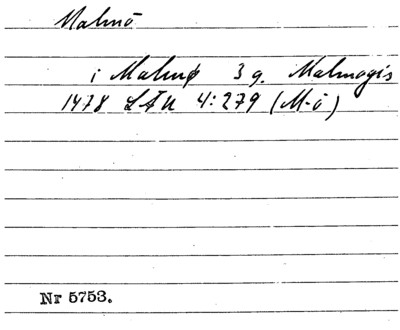 Malmö
i Malmø 3 g. Malmogis
1478 LÄU 4:279 (M-ö)
Nr 5753.